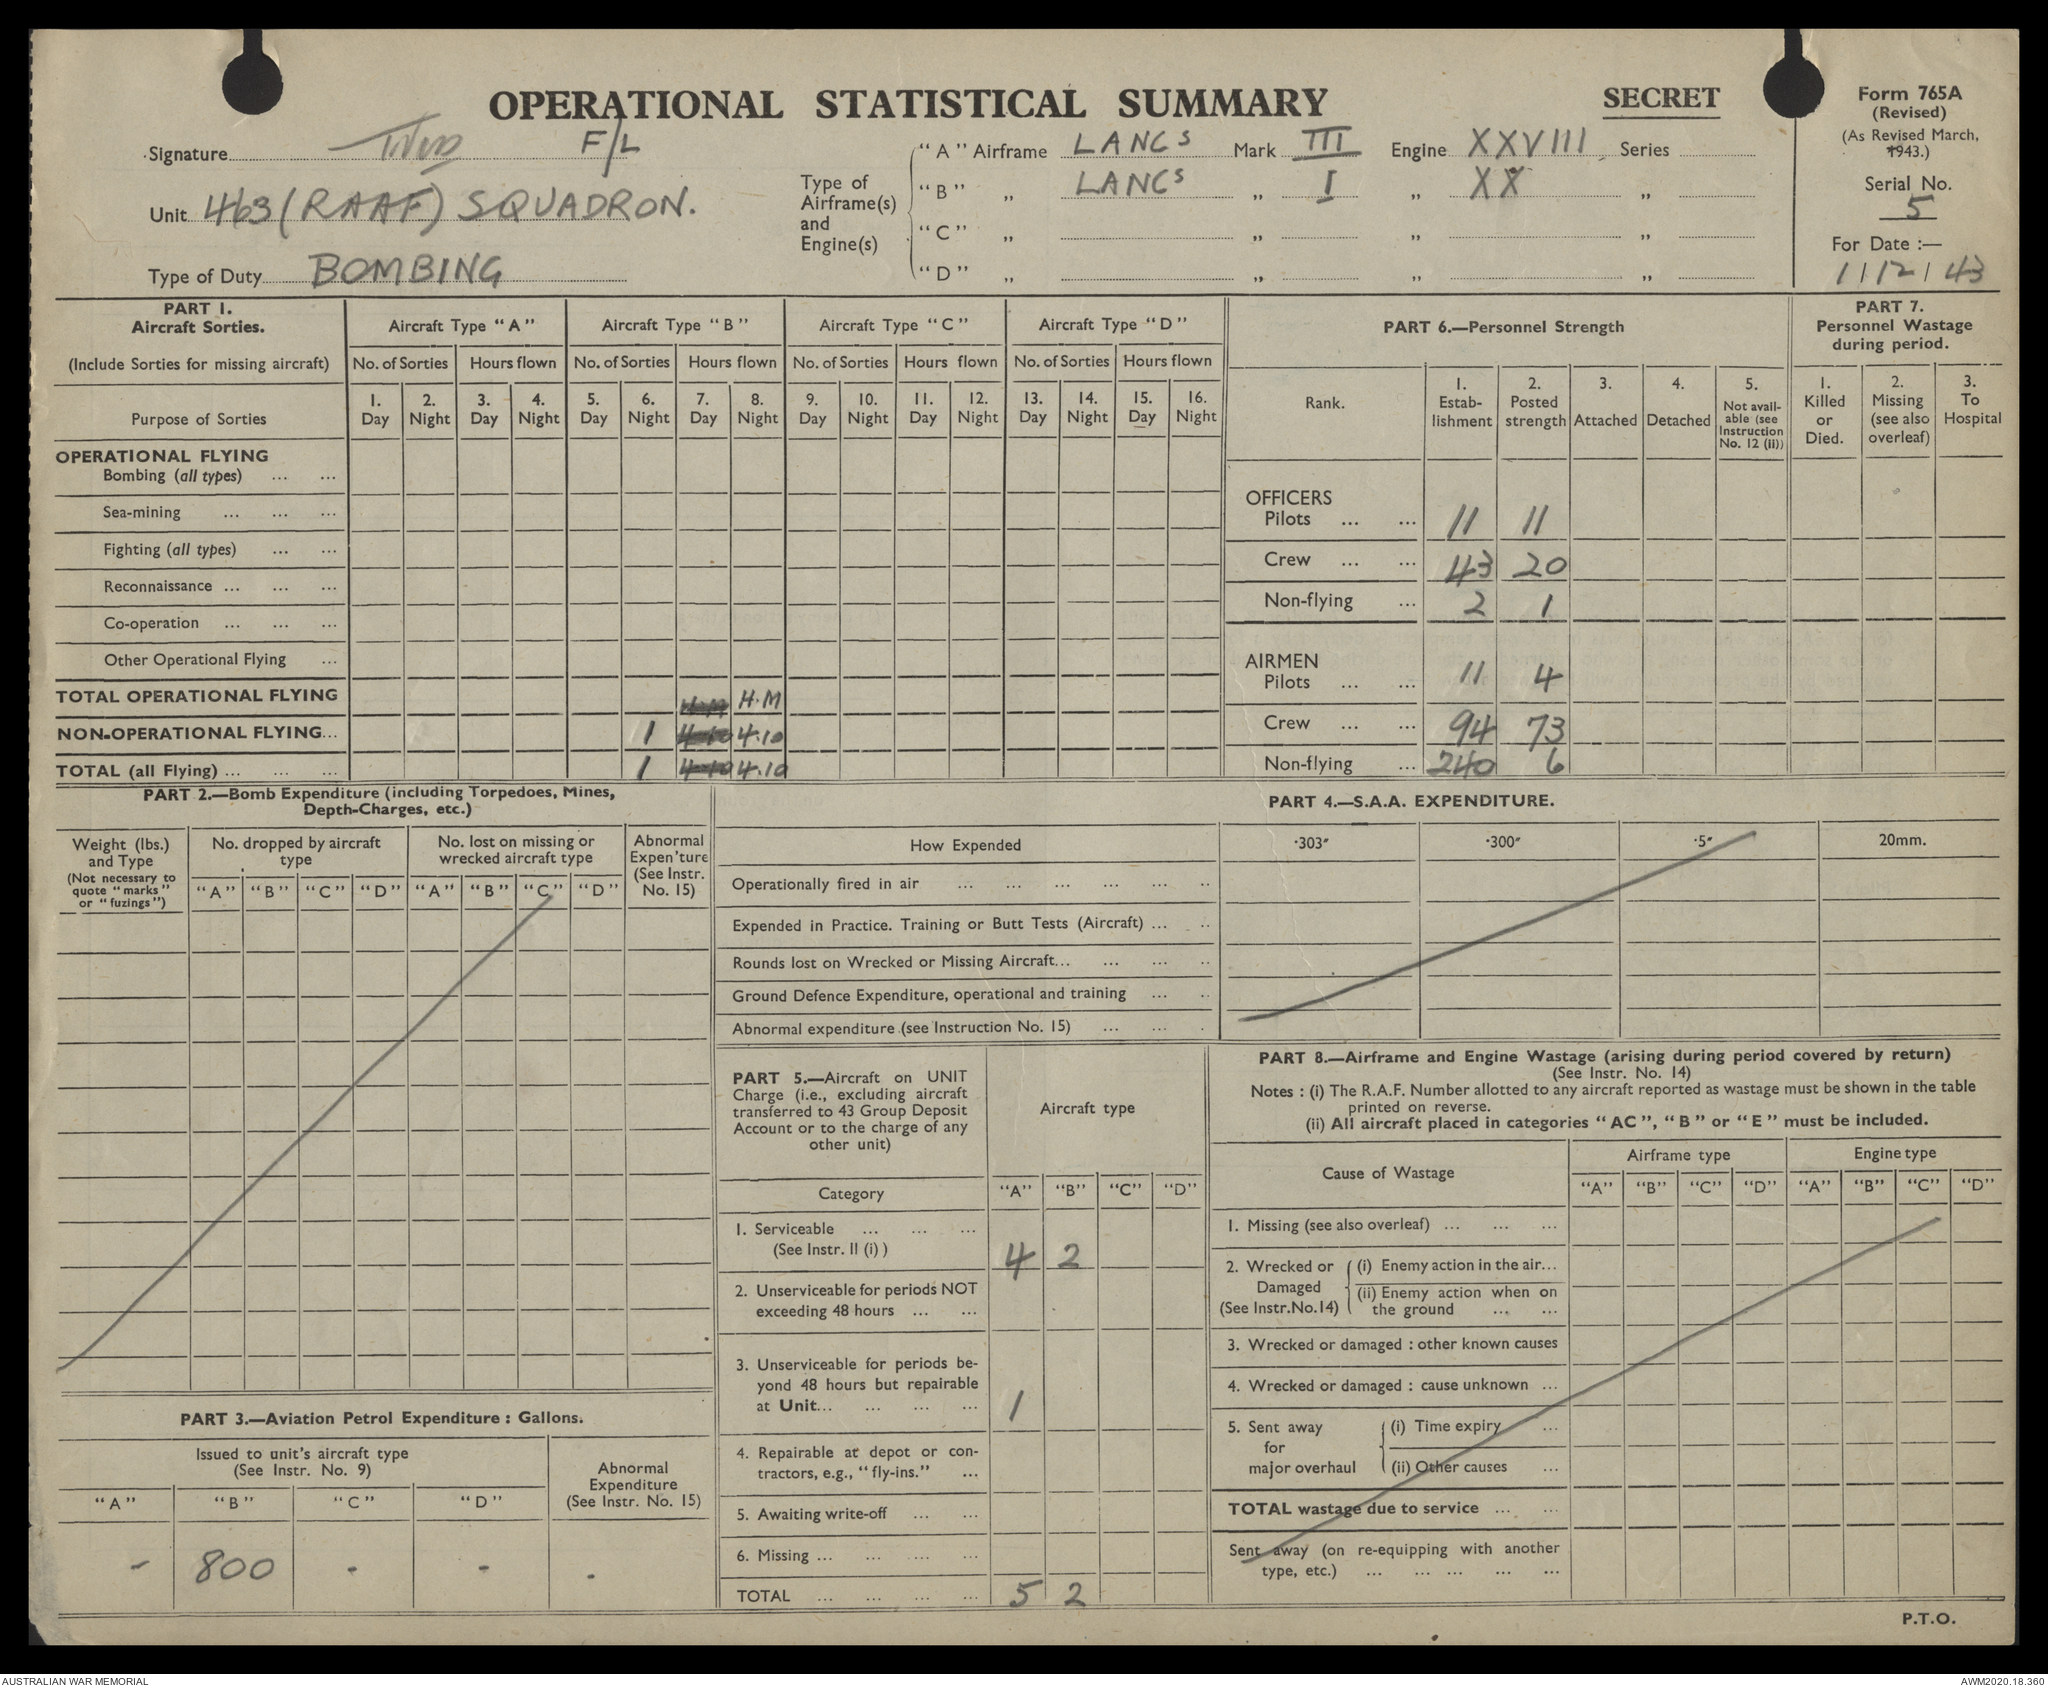 OPERATIONAL STATISTICAL SUMMARY
SECRET
Form 765A
(Revised)
(As Revised March, 1943.)
Serial No.
5
For Date :—
1/12/43
Signature F/L
Unit 463 (RAAF) SQUADRON.
Type of Duty BOMBING
Type of Airframe(s) and Engine(s)
"A" Airframe LANCS Mark III Engine XXVIII Series
"B" „ LANCS „ I „ XX „
"C" „ „ „ „
"D" „ „ „ „
PART 1.
Aircraft Sorties.
(Include Sorties for missing aircraft)
Purpose of Sorties
Aircraft Type "A" Aircraft Type "B" Aircraft Type "C" Aircraft Type "D"
No. of Sorties Hours flown No. of Sorties Hours flown No. of Sorties Hours flown No. of Sorties Hours flown
1. 2. 3. 4. 5. 6. 7. 8. 9. 10. 11. 12. 13. 14. 15. 16.
Day Night Day Night Day Night Day Night Day Night Day Night Day Night Day Night
OPERATIONAL FLYING
Bombing (all types) ... ...
Sea-mining ... ... ...
Fighting (all types) ... ...
Reconnaissance ... ... ...
Co-operation ... ... ...
Other Operational Flying ...
TOTAL OPERATIONAL FLYING H.M H.M
NON-OPERATIONAL FLYING... 1 4.10 4.10
TOTAL (all Flying) ... ... ... 1 4.10 4.10
PART 6.—Personnel Strength
Rank.
1. Estab-lishment
2. Posted strength
3. Attached
4. Detached
5. Not avail-able (see Instruction No. 12 (ii))
OFFICERS
Pilots ... ... 11 11
Crew ... ... 43 20
Non-flying ... 2 1
AIRMEN
Pilots ... ... 11 4
Crew ... ... 94 73
Non-flying ... 240 6
PART 7.
Personnel Wastage
during period.
1. Killed or Died.
2. Missing (see also overleaf)
3. To Hospital
PART 2.—Bomb Expenditure (including Torpedoes, Mines,
Depth-Charges, etc.)
Weight (lbs.) and Type
(Not necessary to quote "marks" or "fuzings")
No. dropped by aircraft type
No. lost on missing or wrecked aircraft type
Abnormal Expen'ture (See Instr. No. 15)
"A" "B" "C" "D" "A" "B" "C" "D"
PART 3.—Aviation Petrol Expenditure : Gallons.
Issued to unit's aircraft type
(See Instr. No. 9)
Abnormal Expenditure (See Instr. No. 15)
"A" "B" "C" "D"
- 800 - - -
PART 4.—S.A.A. EXPENDITURE.
How Expended ·303″ ·300″ ·5″ 20mm.
Operationally fired in air ... ... ... ... ... ..
Expended in Practice. Training or Butt Tests (Aircraft) ... ..
Rounds lost on Wrecked or Missing Aircraft... ... ... ..
Ground Defence Expenditure, operational and training ... ..
Abnormal expenditure (see Instruction No. 15) ... ... .
PART 5.—Aircraft on UNIT
Charge (i.e., excluding aircraft
transferred to 43 Group Deposit
Account or to the charge of any
other unit)
Aircraft type
Category "A" "B" "C" "D"
1. Serviceable ... ... ...
(See Instr. II (i) ) 4 2
2. Unserviceable for periods NOT
exceeding 48 hours ... ...
3. Unserviceable for periods be-
yond 48 hours but repairable
at Unit... ... ... ... 1
4. Repairable at depot or con-
tractors, e.g., "fly-ins." ...
5. Awaiting write-off ... ...
6. Missing ... ... ... ...
TOTAL ... ... ... ... 5 2
PART 8.—Airframe and Engine Wastage (arising during period covered by return)
(See Instr. No. 14)
Notes : (i) The R.A.F. Number allotted to any aircraft reported as wastage must be shown in the table
printed on reverse.
(ii) All aircraft placed in categories "AC", "B" or "E" must be included.
Cause of Wastage
Airframe type Engine type
"A" "B" "C" "D" "A" "B" "C" "D"
1. Missing (see also overleaf) ... ... ...
2. Wrecked or Damaged (See Instr.No.14)
(i) Enemy action in the air...
(ii) Enemy action when on the ground ... ...
3. Wrecked or damaged : other known causes
4. Wrecked or damaged : cause unknown ...
5. Sent away for major overhaul
(i) Time expiry ...
(ii) Other causes ...
TOTAL wastage due to service ... ...
Sent away (on re-equipping with another
type, etc.) ... ... ... ... ...
P.T.O.
AUSTRALIAN WAR MEMORIAL
AWM2020.18.360